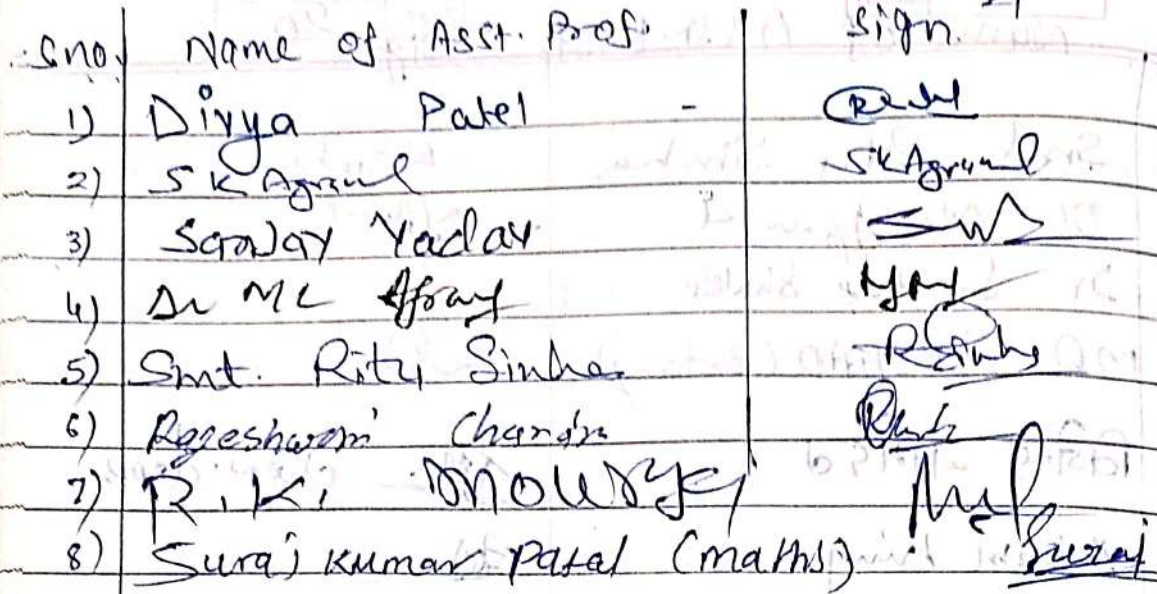 Sno. Name of Asst. Prof. Sign
1) Divya Patel -
2) S K Agrawal SKAgrawal
3) Sanjay Yadav
4) Dr M L
5) Smt. Ritu Sinha RSinha
6) Rajeshwari Chandra
7) R. K. Mourya
8) Suraj Kumar Patal (maths) Suraj